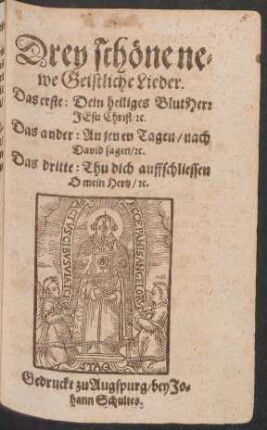 Drey schöne ne-
we Geistliche Lieder.
Das erste: Dein heiliges Blut Herr
JEsu Christ/ ꝛc.
Das ander: An jenen Tagen/ nach
David sagen/ ꝛc.
Das dritte: Thu dich auffschliessen
O mein Hertz/ ꝛc.
ECCE PANIS ANGELORV
FACTVS CIBVS VIATORV
Gedruckt zu Augspurg/ bey Jo-
hann Schultes.